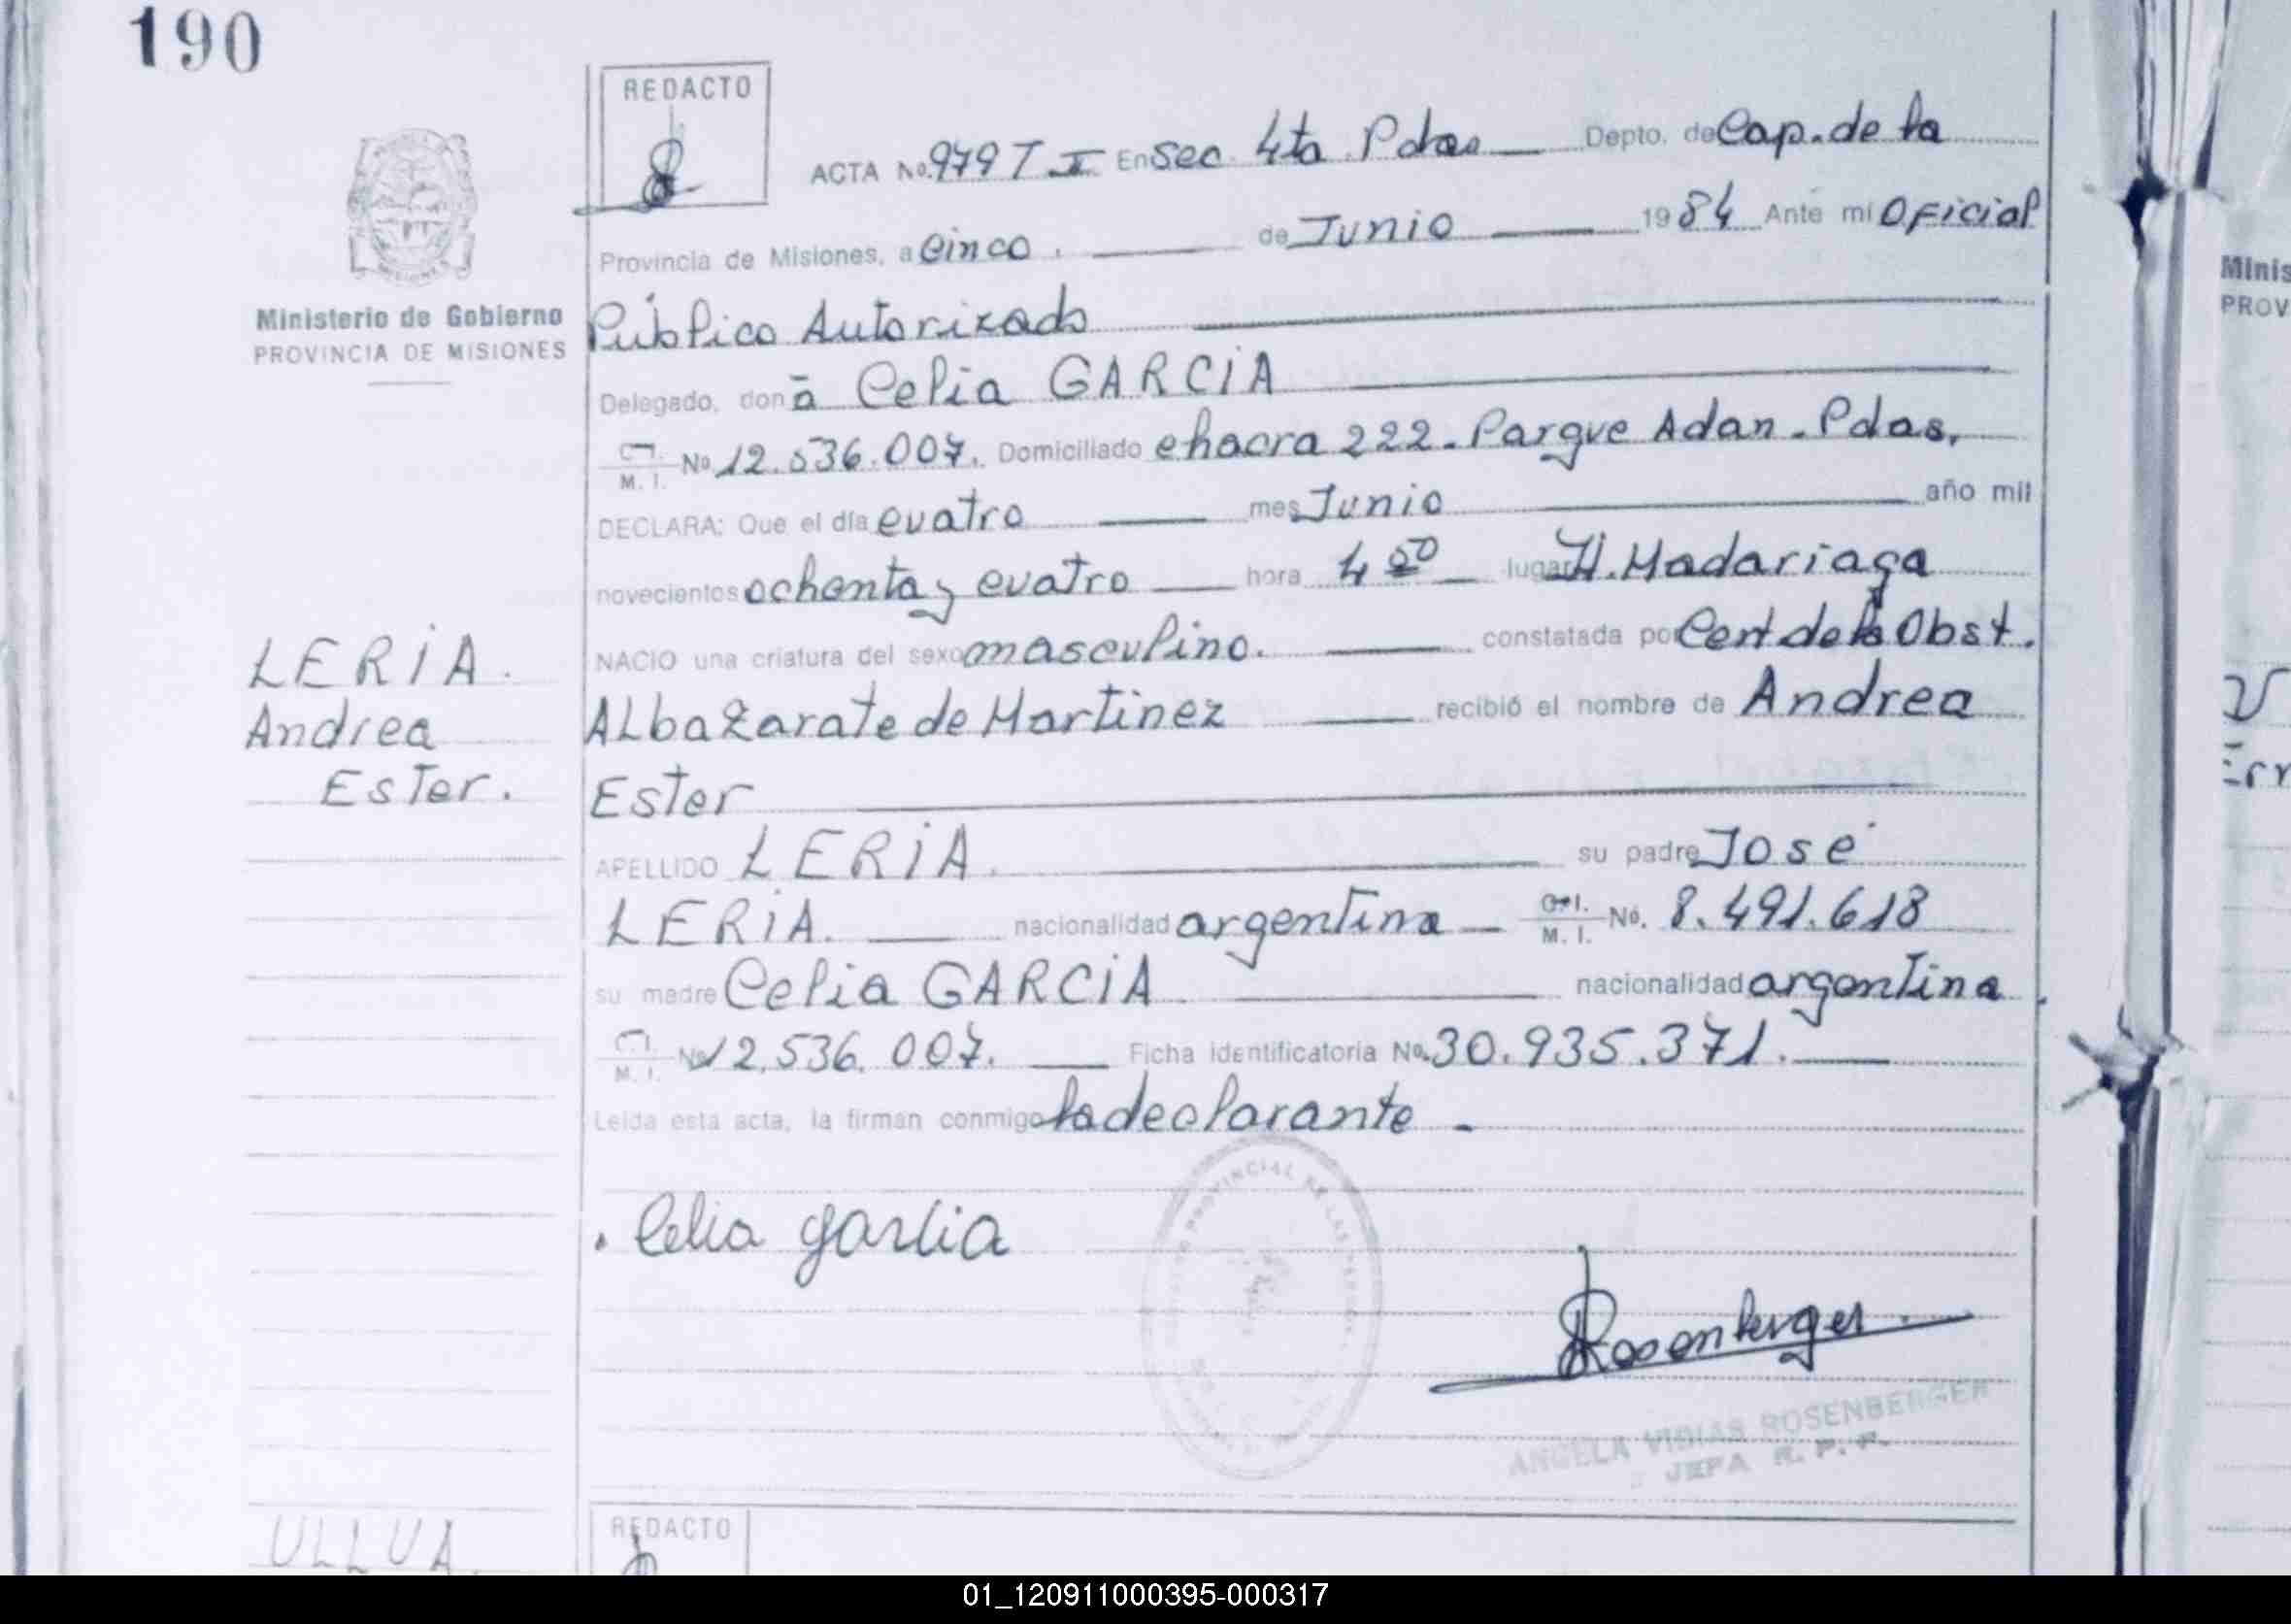 190
REDACTO
ACTA No. 979 T I En Sec. 4ta Pdas Depto. de Cap. de la
Provincia de Misiones, a Cinco. de Junio 1984 Ante mi Oficial
Ministerio de Gobierno
PROVINCIA DE MISIONES
Público Autorizado
Delegado, don ā Celia GARCIA
C. I. M. I. No 12.536.007. Domiciliado chacra 222 - Parque Adan - Pdas.
DECLARA: Que el día cuatro mes Junio año mil
novecientos ochenta y cuatro hora 4 lugar H. Madariaga
NACIO una criatura del sexo masculino. constatada por Cert. de la Obst.
ALba Zarate de Martinez recibió el nombre de Andrea
Ester
APELLIDO LERIA. su padre José
LERIA. nacionalidad argentina C. I. M. I. No. 8.491.618
su madre Celia GARCIA nacionalidad argentina.
C. I. M. I. No 12.536.007. Ficha identificatoria No. 30.935.371.
Leida esta acta, la firman conmigo la declarante -
LERIA.
Andrea
Ester.
Celia garcia
Rosenberger
ANGELA ROSENBERGER
JEFA R. P. P.
ULLUA
REDACTO
Minis
PROV
01_120911000395-000317